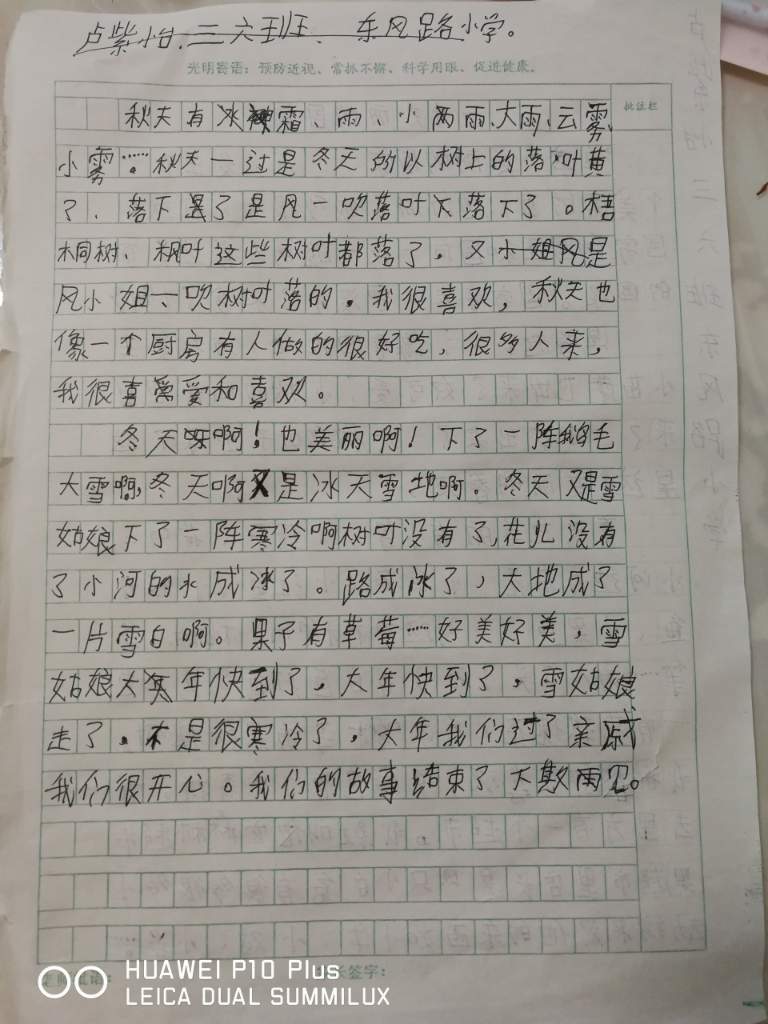 卢紫怡.三六班、东风路小学。
光明寄语:预防近视、常抓不懈、科学用眼、促进健康。
批注栏
秋天有冰霜、雨、小雨雨、大雨、云雾、
小雾……。秋天一过是冬天的以树上的落叶黄
了、落下是了是风一吹落叶下落下了。梧
桐树、枫叶这些树叶都落了,又小姐风是
风小姐一、吹树叶落的。我很喜欢,秋天也
像一个厨房有人做的很好吃,很多人来,
我很喜爱和喜欢。
冬天呀啊!也美丽啊!下了一阵鹅毛
大雪啊,冬天啊又是冰天雪地啊。冬天又是雪
姑娘下了一阵寒冷啊树叶没有了,花儿没有
了小河的水成冰了。路成冰了,大地成了
一片雪白啊。果子有草莓……好美好美,雪
姑娘大年快到了,大年快到了,雪姑娘
走了。不是很寒冷了,大年我们过了亲戚
我们很开心。我们的故事结束了下次再见。
长签字:
HUAWEI P10 Plus
LEICA DUAL SUMMILUX